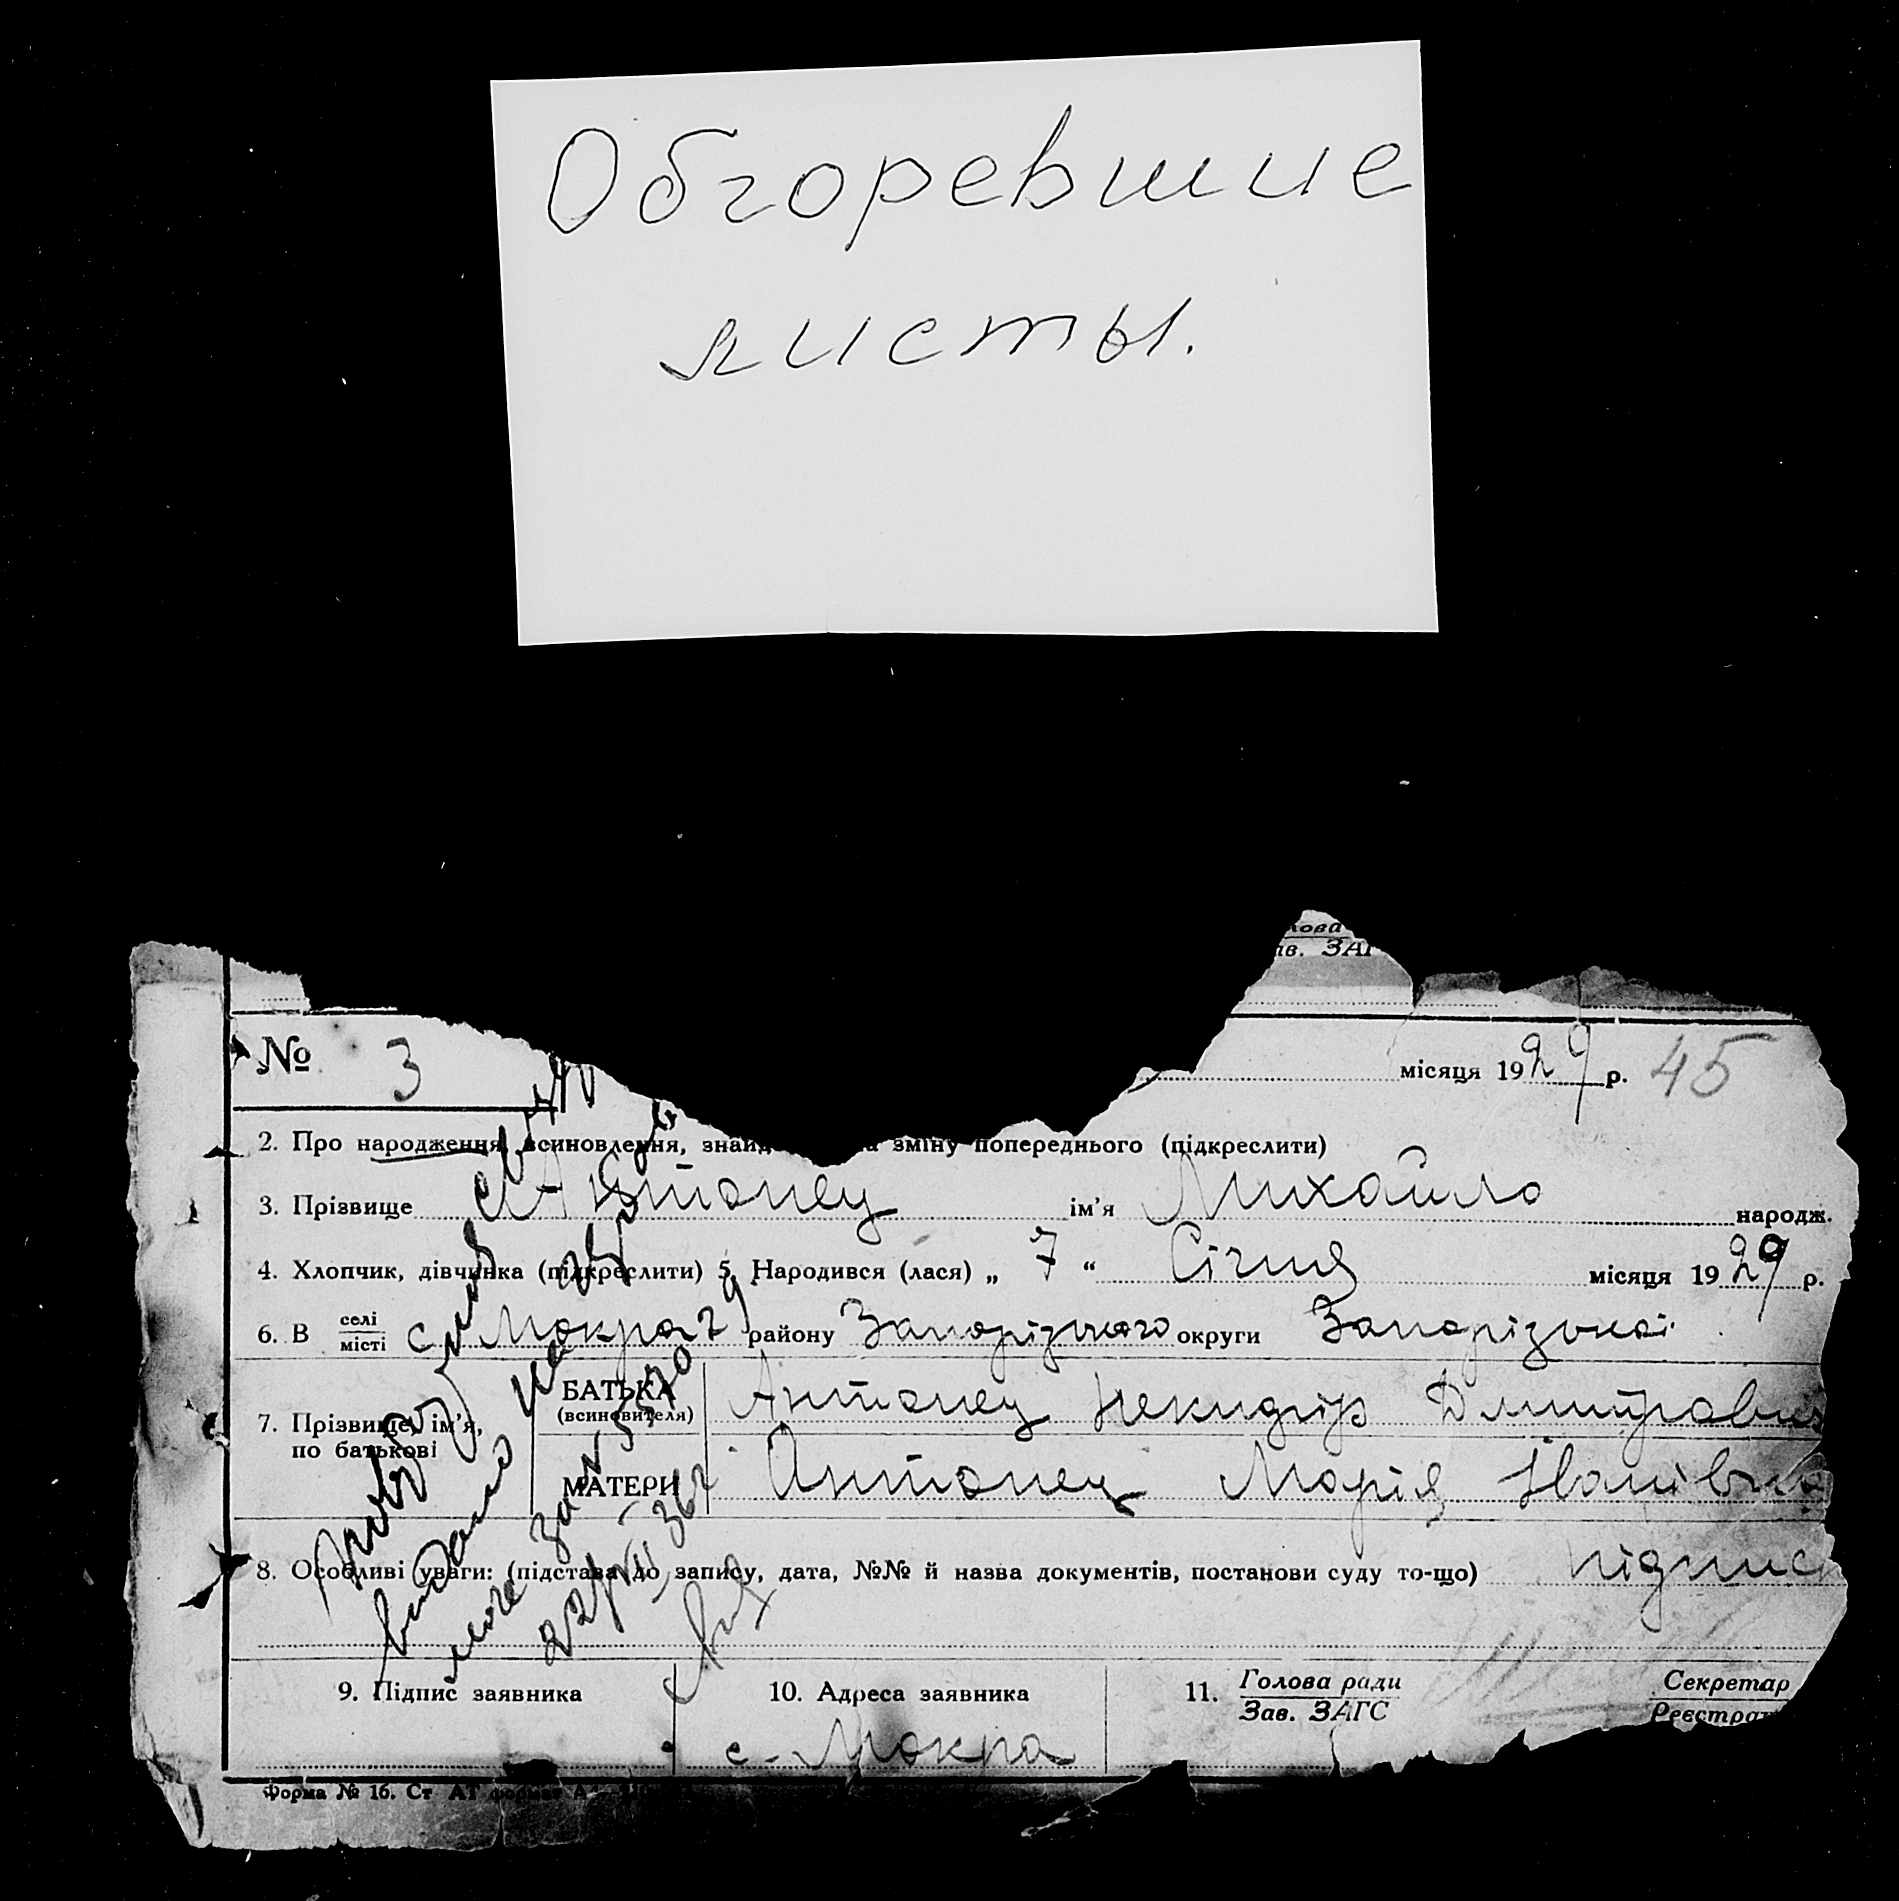 Обгоревшие
листы.
Зав. ЗАГ
№ 3 місяця 1929 р. 45
2. Про народження, всиновлення, зміну попереднього (підкреслити)
3. Прізвище Антонец ім'я Михайло народж.
4. Хлопчик, дівчинка (підкреслити) 5. Народився (лася) „ 7 “ Січня місяця 1929 р.
6. В селі місті с. Мокрого району Запорізького округи Запорізької
7. Прізвище, ім'я, по батькові
БАТЬКА (всиновителя) Антонец Дмитрович
МАТЕРИ Антонец Марія Іванівна
8. Особливі уваги: (підстава до запису, дата, №№ й назва документів, постанови суду то-що) підпис
9. Підпис заявника
10. Адреса заявника
с. Мокра
11. Голова ради
Зав. ЗАГС
Секретар
Реєстрат
Форма № 16. Ст
видано на
за №